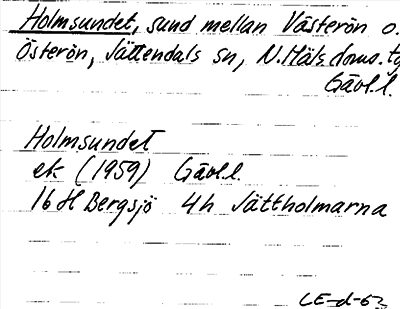 Holmsundet, sund mellan Västerön o.
Österön, Jättendals sn, N. Häls. doms. 
Gävl.l.
Holmsundet
ek (1959) Gävl.l.
16 H Bergsjö 4h Jättholmarna
CE-d-63